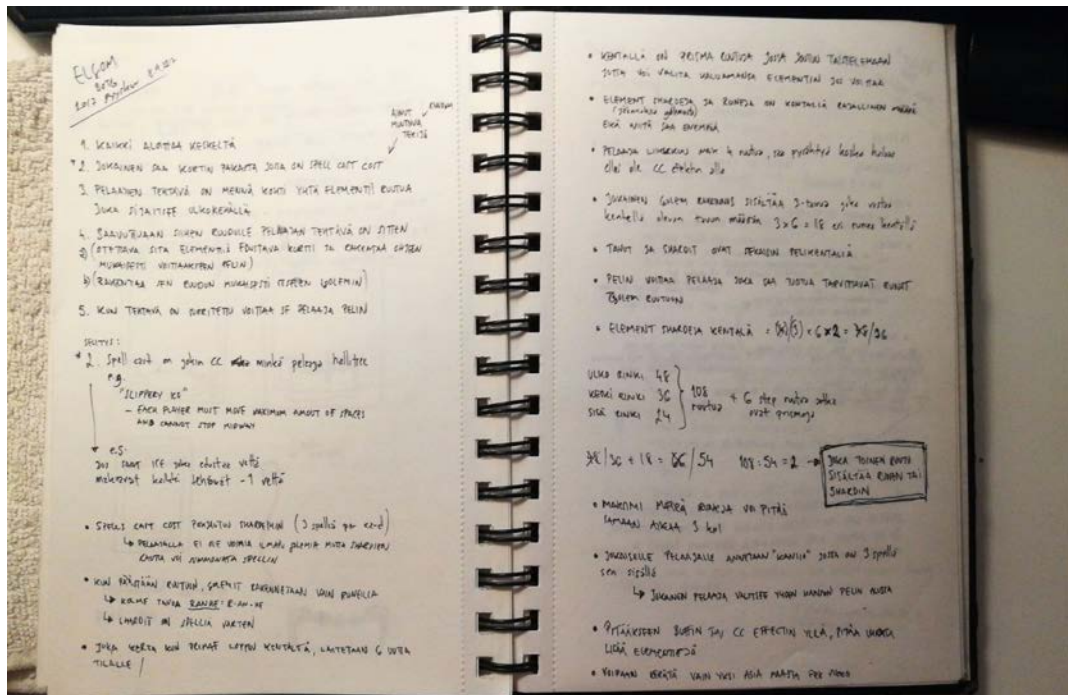 ELGOM
2016
2017
1. KAIKKI ALOTTAA KESKELTÄ
AINUT
MUUTTUVA
TEKIJÄ
* 2. JOKAINEN SAA KORTIN PAKASTA JOSSA ON SPELL CAST COST
3. PELAAJEN TEHTÄVÄ ON MENNÄ KOHTI YHTÄ ELEMENTTI RUUTUA
JOKA SIJAITSEE ULKOKEHÄLLÄ
4. SAAVUTTUAAN SIIHEN RUUDULLE PELAAJAN TEHTÄVÄ ON SITTEN
a) (OTETTAVA SITÄ ELEMENTTIÄ EDUSTAVA KORTTI JA RAKENTAA OHJEEN
MUKAISESTI VOITTAAKSEEN PELIN)
b) (RAKENTAA SEN RUUDUN MUKAISESTI ITSELLEEN GOLEMIN)
5. KUN TEHTÄVÄ ON SUORITETTU VOITTAA SE PELAAJA PELIN
SELITYS:
* 2. Spell cost on jokin CC minkä pelaaja hallitsee
e.g.
"SLIPPERY ICE"
- EACH PLAYER MUST MOVE MAXIMUM AMOUT OF SPACES
AND CANNOT STOP MIDWAY
e.s.
Jos saat ICE joka edustaa vettä
maksavat kaikki -1 vettä
• SPELLS CAST COST SHARDEIHIN (3 spelliä per card)
↳ PELAAJALLA EI OLE VOIMIA ILMAN MUTTA SHARDIEN
KAUTTA VOI SUMMONATA SPELLIN
• KUN PÄÄSTÄÄN RUUTUUN, RAKENNETAAN VAIN RUNEILLA
↳ KOLME TAVUA
↳ SHARDIT ON SPELLIÄ VARTEN
• JOKA KERTA KUN LOPPUU KENTÄLTÄ, LAITETAAN 6 UUTTA
TILALLE
• KENTÄLLÄ ON PRISMA RUUTUJA JOISSA JOUTUU TAISTELEMAAN
JOTTA VOI VALITA HALUAMANSA ELEMENTIN JOS VOITTAA
• ELEMENT SHARDEJA JA RUNEJA ON KENTÄLLÄ RAJALLINEN MÄÄRÄ
EIKÄ NIITÄ SAA ENEMPÄÄ
• PELAAJA LIIKKUU MAX 4 ruutua, saa pysähtyä koska haluaa
ellei ole CC efektin alla
• JOKAINEN GOLEM RAKENNUS SISÄLTÄÄ 3-tavua joka vastaa
kentällä olevan tavun määrää 3 x 6 = 18 eri runea kentällä
• TAVUT JA SHARDIT OVAT SEKAISIN PELIKENTÄLLÄ
• PELIN VOITTAA PELAAJA JOKA SAA TUOTUA TARVITTAVAT RUNAT
GOLEM RUUTUUN
• ELEMENT SHARDEJA KENTÄLLÄ = (3) x 6 x 2 = /36
ULKO RINKI 48
KESKI RINKI 36
SISÄ RINKI 24
108
ruutua
+ 6 step ruutua jotka
ovat prismoja
/36 + 18 = /54 108:54 = 2 →
JOKA TOINEN RUUTU
SISÄLTÄÄ RUNAN TAI
SHARDIN
• MAKSIMI MÄÄRÄ RUNEJA VOI PITÄÄ
SAMAAN AIKAA 3 kpl
• JOKAISELLE PELAAJALLE ANNETAAN "KANSIO" JOSSA ON 3 spelliä
sen sisällä
↳ JOKAINEN PELAAJA VALITSEE YHDEN KANSION PELIN ALUSSA
• PITÄÄKSEEN BUFFIN TAI CC EFFECTIN YLLÄ, PITÄÄ UHRATA
LISÄÄ ELEMENTTEJÄ
• VOIDAAN KERÄTÄ VAIN YKSI ASIA MAASTA PER VUORO